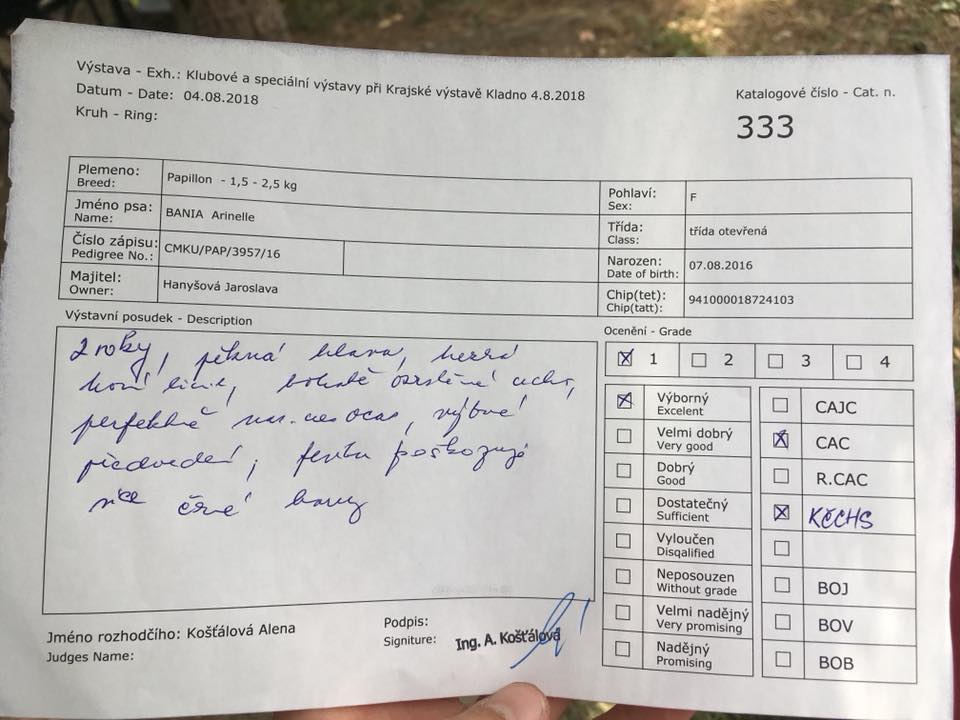 Výstava - Exh.: Klubové a speciální výstavy při Krajské výstavě Kladno 4.8.2018
Datum - Date: 04.08.2018
Kruh - Ring:
Katalogové číslo - Cat. n.
333
Plemeno: Papillon - 1,5 - 2,5 kg
Breed:
Jméno psa: BANIA Arinelle
Name:
Číslo zápisu: CMKU/PAP/3957/16
Pedigree No.:
Majitel: Hanyšová Jaroslava
Owner:
Pohlaví: F
Sex:
Třída: třída otevřená
Class:
Narozen: 07.08.2016
Date of birth:
Chip(tet): 941000018724103
Chip(tatt):
Výstavní posudek - Description
2 roky, pěkná hlava, hezká
horní linie, bohatě osrstěné ucho,
perfektně ocas, výborné
předvedení, fenku poškozuje
více černé barvy
Jméno rozhodčího: Košťálová Alena
Judges Name:
Podpis:
Signiture:
Ing. A. Košťálová
Ocenění - Grade
1 2 3 4
Výborný
Excelent
Velmi dobrý
Very good
Dobrý
Good
Dostatečný
Sufficient
Vyloučen
Disqalified
Neposouzen
Without grade
Velmi nadějný
Very promising
Nadějný
Promising
CAJC
CAC
R.CAC
KČCHS
BOJ
BOV
BOB